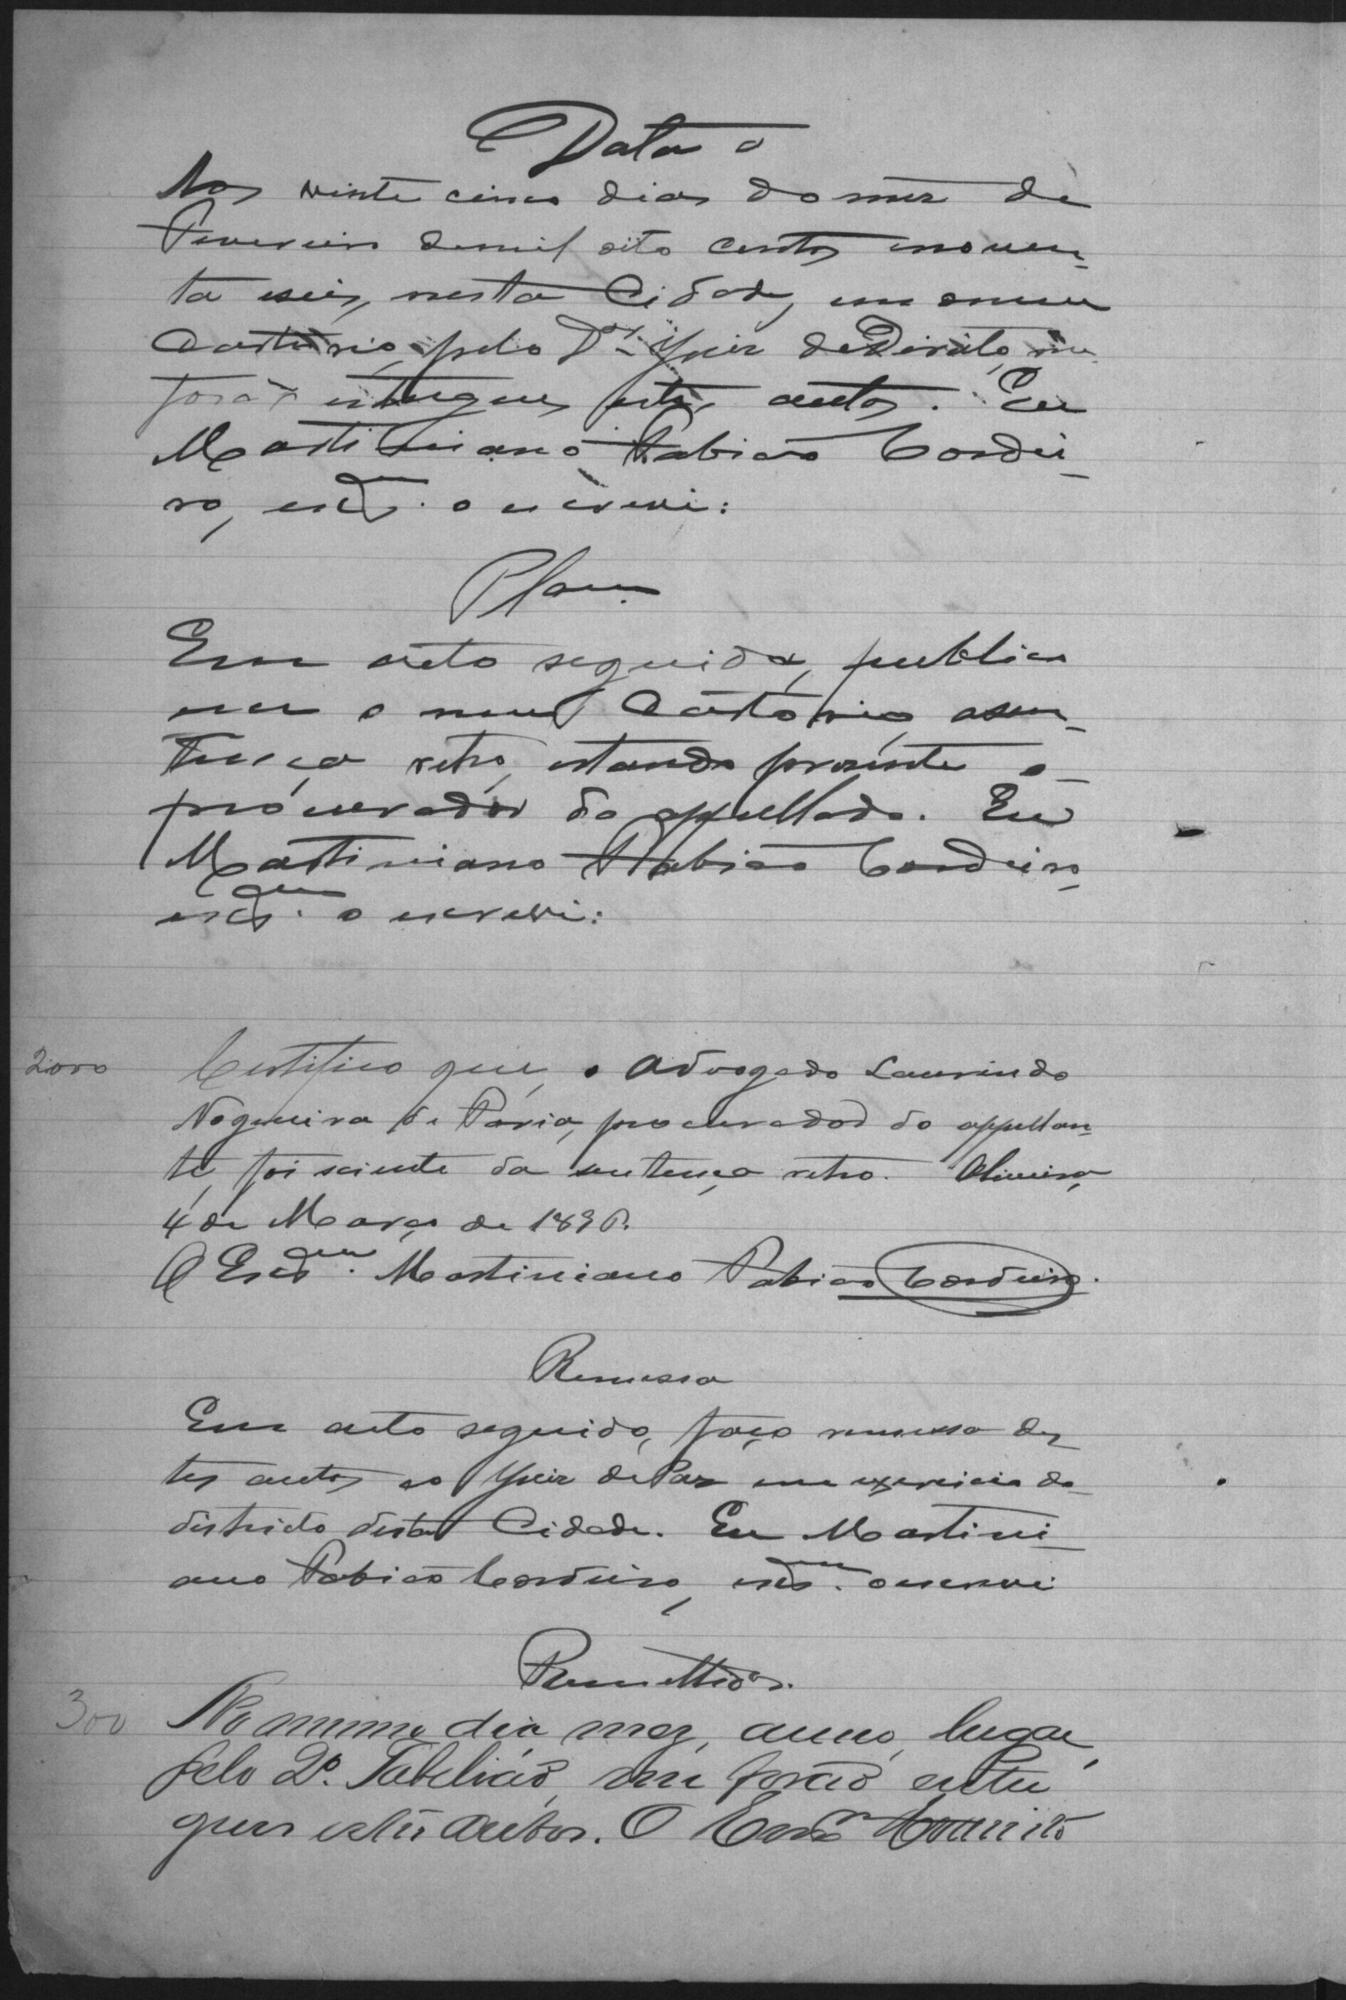 Data
Aos vinte cinco dias do mez de
Fevereiro de mil oito centos e noven-
ta e seis, nesta Cidade, em o meu
Cartorio, pelo Dr. Juiz de Direito, me
forão entregues estes autos. Eu
Martiniano Fabião Cordei-
ro, escr.m o escrevi:
Pbam.
Em acto seguido, publica
em o meu Cartorio, a sen-
tença retro, estando presente o
procurador do appellado. Eu
Martiniano Fabião Cordeiro,
escr.m o escrevi:
2000 Certifico que o Advogado Laurindo
Nogueira de Faria, procurador do appellan-
te, foi sciente da sentença retro. Oliveira,
4 de Março de 1896.
O Escr.m Martiniano Fabião Cordeiro.
Remessa
Em acto seguido, faço remessa des
tes autos ao Juiz de Paz em exercicio do
districto desta Cidade. Eu Martini-
ano Fabião Cordeiro, escr.m o escrevi
Remettidos.
300 No mesmo dia, mez, anno, lugar,
pelo 2º. Tabelião, me forão entre
gues estes autos. O Escr.m